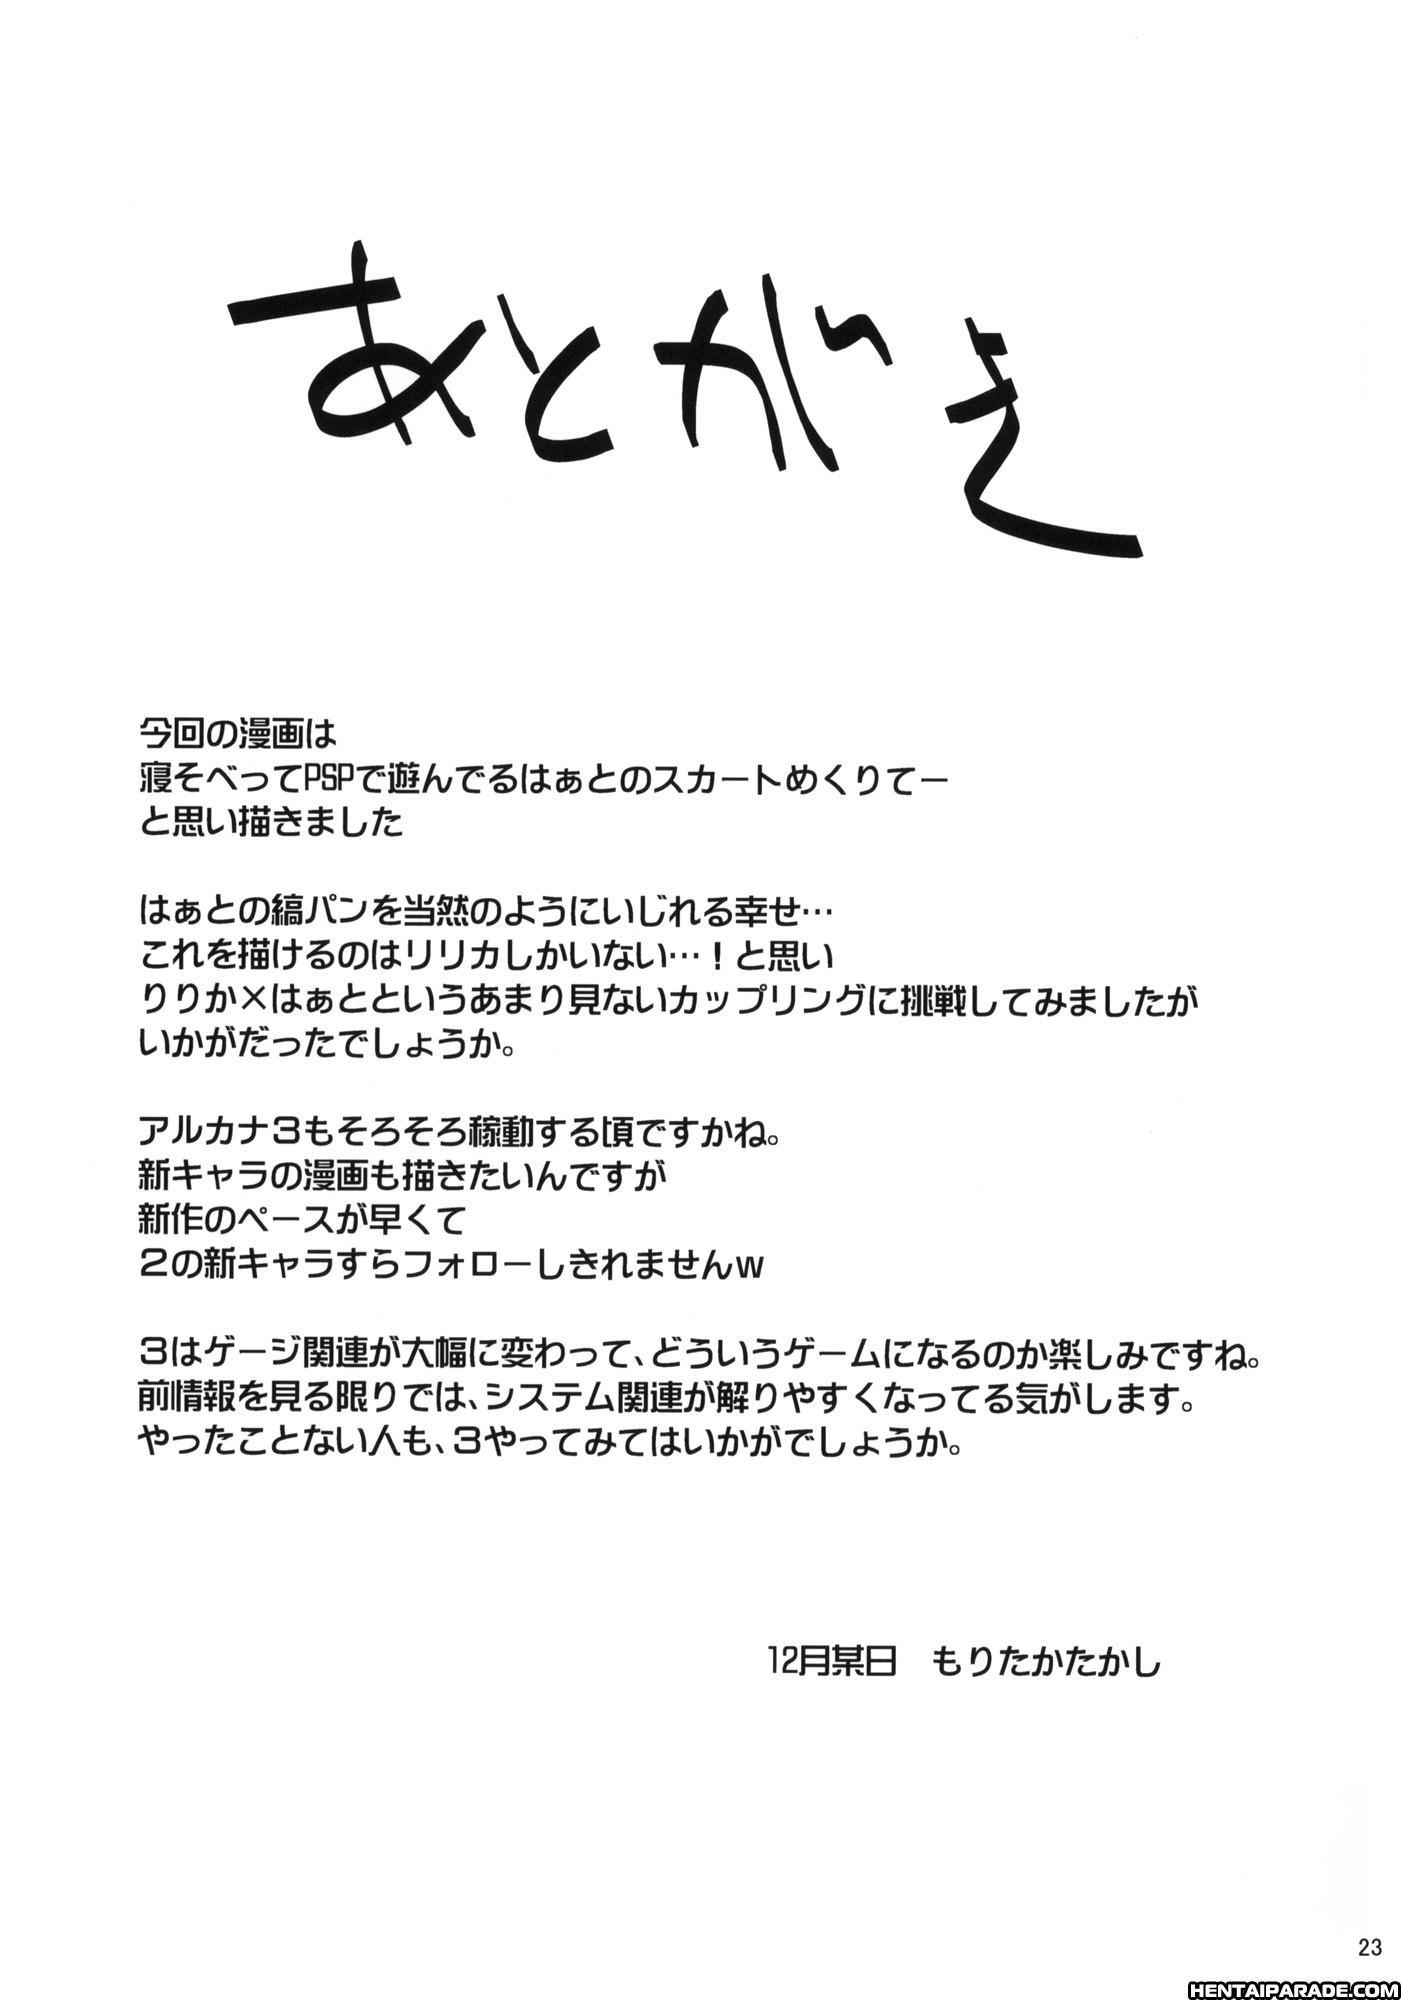 あとがき
今回の漫画は
寝そべってPSPで遊んでるはぁとのスカートめくりてー
と思い描きました
はぁとの縞パンを当然のようにいじれる幸せ…
これを描けるのはリリカしかいない…！と思い
りりか×はぁとというあまり見ないカップリングに挑戦してみましたが
いかがだったでしょうか。
アルカナ３もそろそろ稼動する頃ですかね。
新キャラの漫画も描きたいんですが
新作のペースが早くて
２の新キャラすらフォローしきれませんｗ
３はゲージ関連が大幅に変わって、どういうゲームになるのか楽しみですね。
前情報を見る限りでは、システム関連が解りやすくなってる気がします。
やったことない人も、３やってみてはいかがでしょうか。
12月某日　もりたかたかし
23
HENTAIPARADE.COM